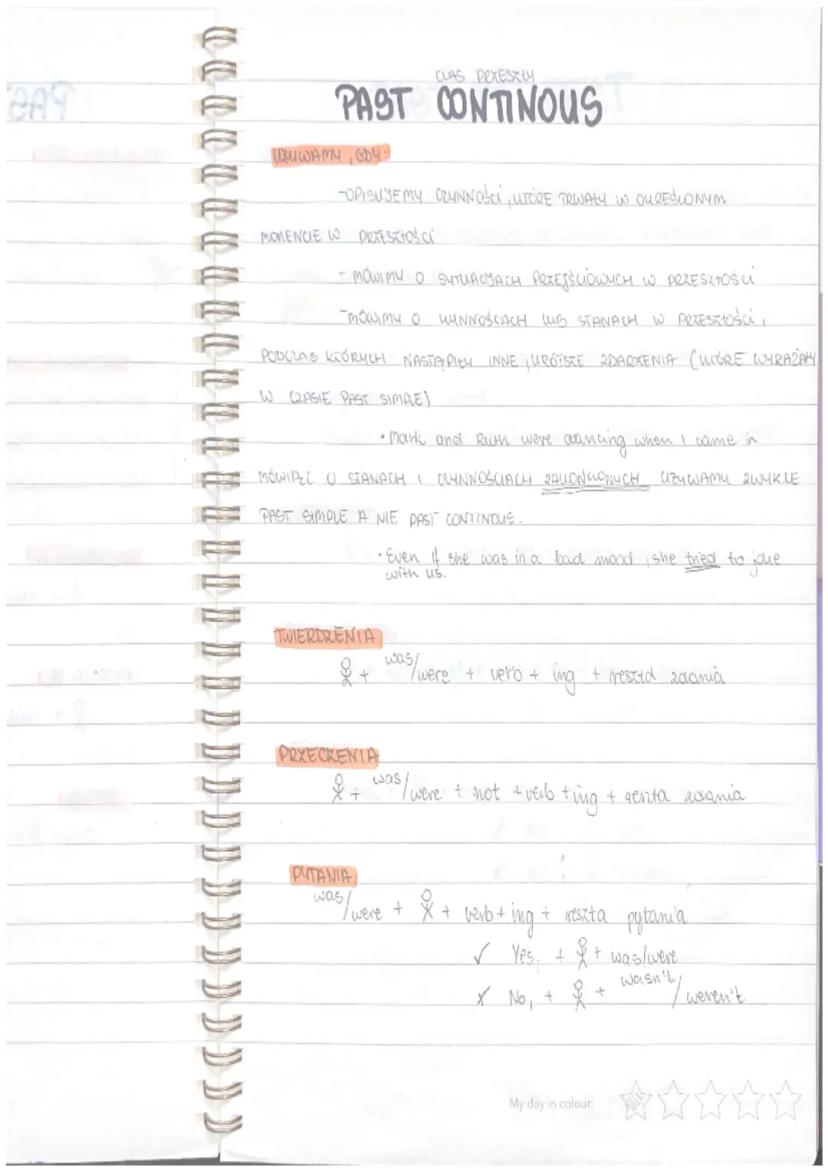 CZAS PRZESZŁY
PAST CONTINOUS
UŻYWAMY, GDY:
-OPISUJEMY CZYNNOŚCI, KTÓRE TRWAŁY W OKREŚLONYM
MOMENCIE W PRZESZŁOŚCI
- MÓWIMY O SYTUACJACH PRZEJŚCIOWYCH W PRZESZŁOŚCI
-MÓWIMY O CZYNNOŚCIACH LUB STANACH W PRZESZŁOŚCI,
PODCZAS KTÓRYCH NASTĄPIŁY INNE, KRÓTSZE ZDARZENIA (KTÓRE WYRAŻAMY
W CZASIE PAST SIMPLE)
• Mark and Ruth were dancing when I came in
MÓWIĄC O STANACH I CZYNNOŚCIACH ZAKOŃCZONYCH UŻYWAMY ZWYKLE
PAST SIMPLE A NIE PAST CONTINOUS.
• Even if she was in a bad mood, she tried to joke
with us.
TWIERDZENIA
+ was/were + verb + ing + reszta zdania
PRZECZENIA
+ was/were + not + verb + ing + reszta zdania
PYTANIA
was/were + + verb + ing + reszta pytania
✓ Yes, + + was/were
x No, + + wasn't/weren't
My day in colour:
PAS